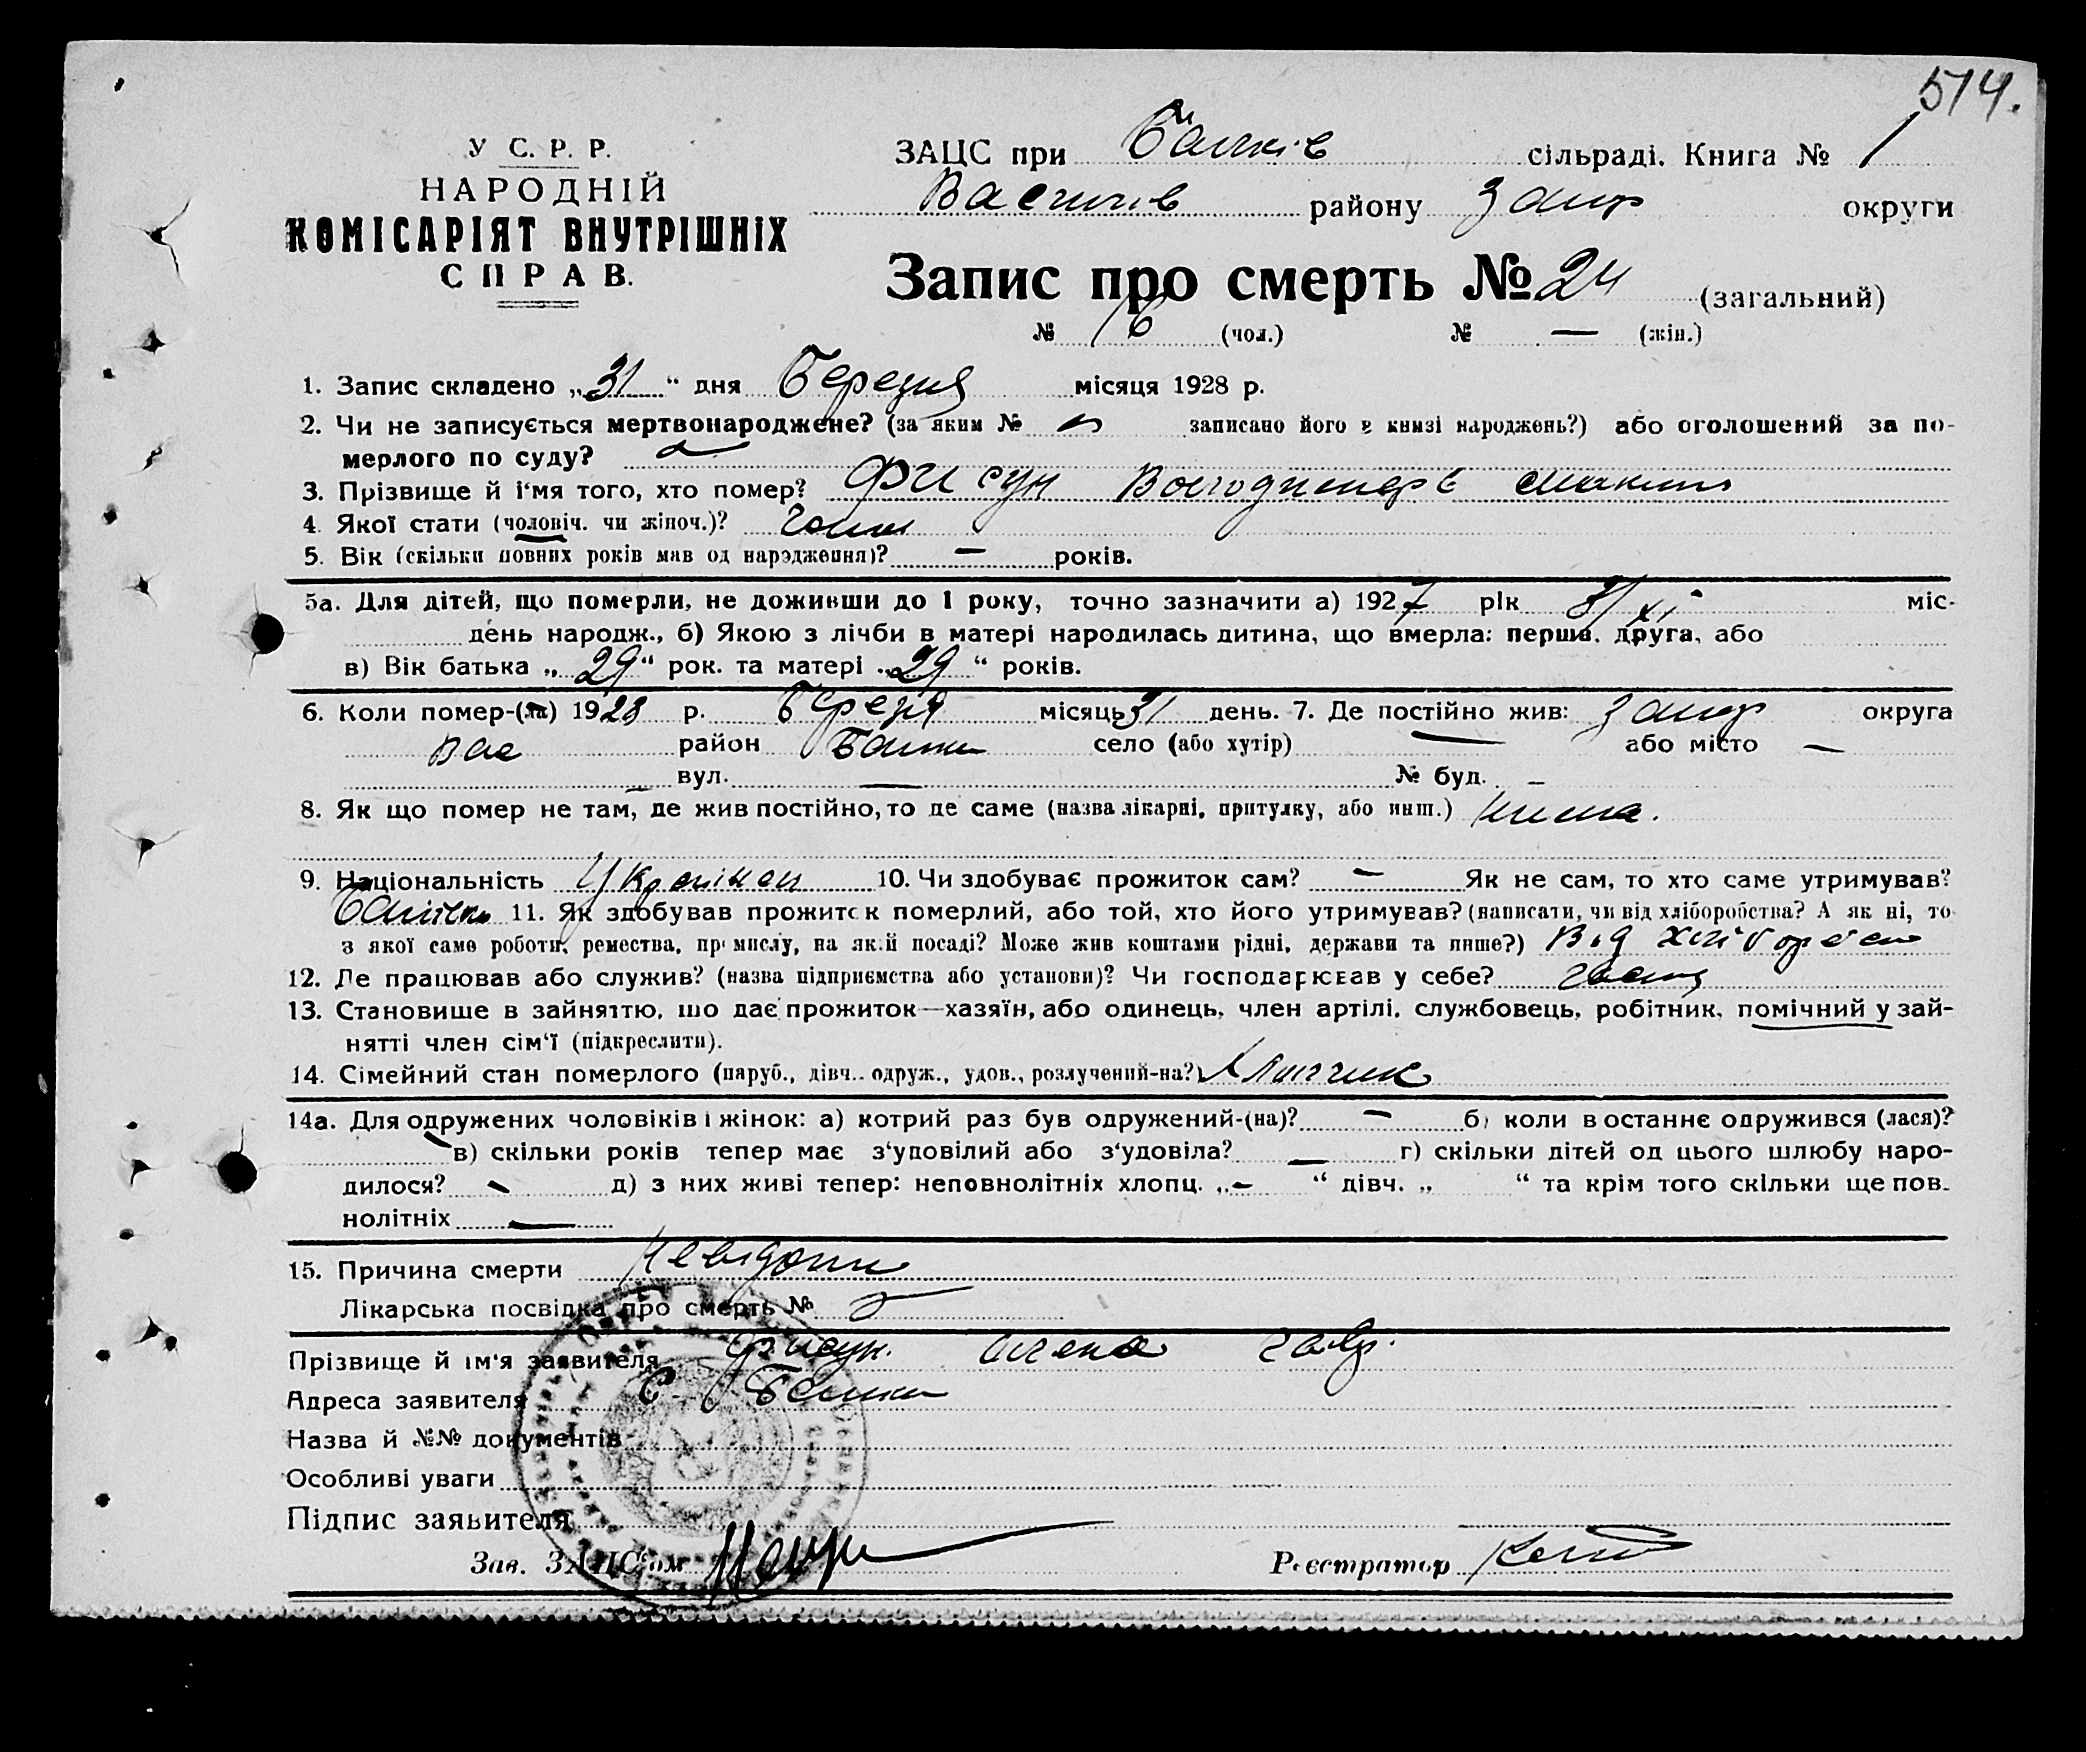 514.
У С. Р. Р.
НАРОДНІЙ
КОМІСАРІЯТ ВНУТРІШНІХ
СПРАВ.
ЗАЦС при Балків сільраді. Книга № 1
Василів району Запор округи
Запис про смерть № 24 (загальний)
№ 16 (чол.) № — (жін.)
1. Запис складено „31“ дня Березня місяця 1928 р.
2. Чи не записується мертвонароджене? (за яким № записано його в книзі народжень?) або оголошений за по-
мерлого по суду?
3. Прізвище й і‘мя того, хто помер? Фисун Володимер
4. Якої стати (чоловіч. чи жіноч.)? чолов
5. Вік (скільки повних років мав од народження)? — років.
5а. Для дітей, що померли, не доживши до 1 року, точно зазначити а) 1927 рік XI міс-
день народж., б) Якою з лічби в матері народилась дитина, що вмерла: перша, друга, або
в) Вік батька „29“ рок. та матері „29“ років.
6. Коли помер-(ла) 1928 р. Березня місяць 31 день. 7. Де постійно жив: Запор округа
Вас район Балки село (або хутір) — або місто —
вул. — № буд. –
8. Як що помер не там, де жив постійно, то де саме (назва лікарні, притулку, або инш.)
9. Національність Українец 10. Чи здобуває прожиток сам? — Як не сам, то хто саме утримував?
Батько 11. Як здобував прожиток померлий, або той, хто його утримував? (написати, чи від хліборобства? А як ні, то
з якої саме роботи, ремества, промислу, на якій посаді? Може жив коштами рідні, держави та инше?) Від хлібороб
12. Де працював або служив? (назва підприємства або установи)? Чи господарював у себе?
13. Становище в зайняттю, що дає прожиток—хазяїн, або одинець, член артілі, службовець, робітник, помічний у зай-
нятті член сім‘ї (підкреслити).
14. Сімейний стан померлого (паруб., дівч.. одруж., удов., розлучений-на?) Хлопчик
14а. Для одружених чоловіків і жінок: а) котрий раз був одружений-(на)? — б) коли востаннє одружився (лася)?
в) скільки років тепер має з‘удовілий або з‘удовіла? — г) скільки дітей од цього шлюбу наро-
дилося? д) з них живі тепер: неповнолітніх хлопц. „–“ дівч. „ “ та крім того скільки ще пов-
нолітніх —
15. Причина смерти Невідома
Лікарська посвідка про смерть №
Прізвище й ім‘я заявителя Фисун Олена Гавр.
Адреса заявителя С. Балки
Назва й №№ документів
Особливі уваги
Підпис заявителя
Зав. ЗАЦС‘ом Реєстратор